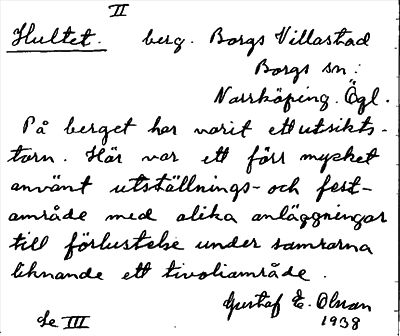 II
Hultet. berg. Borgs Villastad
Borgs sn:
Norrköping. Ögl.
På berget har varit ett utsikts-
torn. Här var ett förr mycket
använt utställnings- och fest-
område med olika anläggningar
till förlustelse under somrarna
liknande ett tivoliområde.
Gustaf E. Olsson
1938
Se III